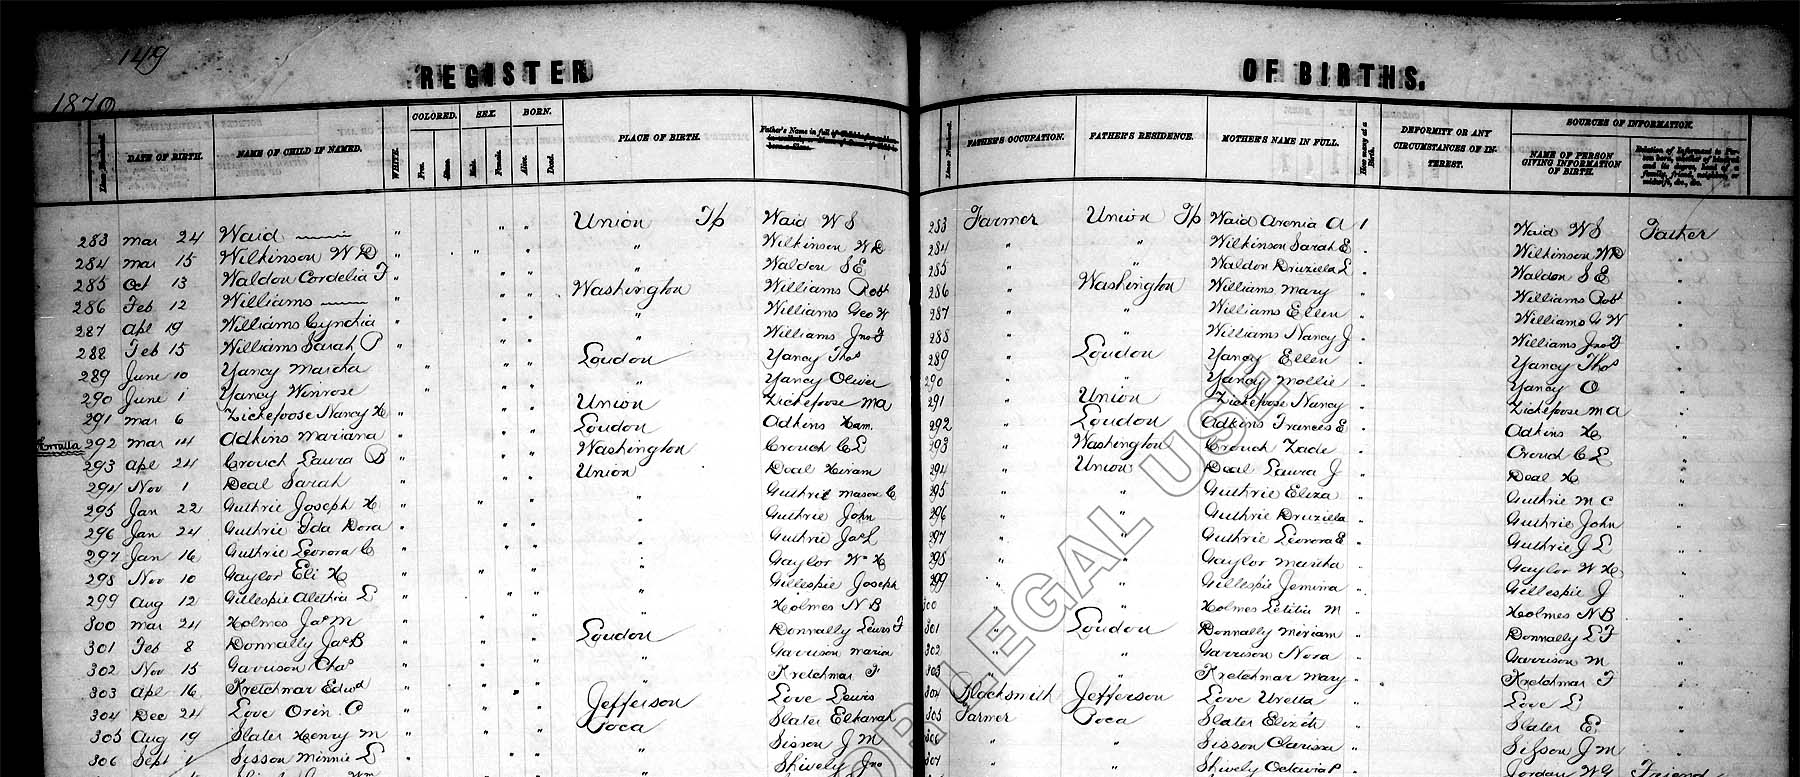 149
REGISTER OF BIRTHS.
1870
Line Numbered. DATE OF BIRTH. NAME OF CHILD IF NAMED. WHITE. COLORED. Free. Slave. SEX. Male. Female. BORN. Alive. Dead. PLACE OF BIRTH. Father's Name in full FATHER'S OCCUPATION. FATHER'S RESIDENCE. MOTHER'S NAME IN FULL. How many at a Birth. DEFORMITY OR ANY CIRCUMSTANCES OF INTEREST. SOURCES OF INFORMATION. NAME OF PERSON GIVING INFORMATION OF BIRTH.
283 Mar 24 Waid " " " Union Tp Waid W S 283 Farmer Union Tp Waid Aronia A 1 Waid W S Father
284 Mar 15 Wilkinson W D " " " " Wilkinson W D 284 " " Wilkinson Sarah E " Wilkinson W D "
285 Oct 13 Waldon Cordelia F " " " " Waldon S E 285 " " Waldon Druzilla L " Waldon S E "
286 Feb 12 Williams " " " Washington Williams Robt 286 " Washington Williams Mary " Williams Robt "
287 Apl 19 Williams Cynthia " " " " Williams Geo W 287 " " Williams Ellen " Williams G W "
288 Feb 15 Williams Sarah P " " " " Williams Jno F 288 " " Williams Nancy J " Williams Jno F "
289 June 10 Yancy Martha " " " Loudon Yancy Thos 289 " Loudon Yancy Ellen " Yancy Thos "
290 June 1 Yancy Winrose " " " " Yancy Oliver 290 " " Yancy Mollie " Yancy O "
291 Mar 6 Zickefoose Nancy H " " " Union Zickefoose M A 291 " Union Zickefoose Nancy " Zickefoose M A "
292 Mar 14 Adkins Mariana " " " Loudon Adkins Ham. 292 " Loudon Adkins Frances E " Adkins H "
293 Apl 24 Crouch Laura B " " " Washington Crouch C L 293 " Washington Crouch Zade " Crouch C L "
294 Nov 1 Deal Sarah " " " Union Deal Hiram 294 " Union Deal Laura J " Deal H "
295 Jan 22 Guthrie Joseph H " " " " Guthrie Mason C 295 " " Guthrie Eliza " Guthrie M C "
296 Jan 24 Guthrie Ida Dora " " " " Guthrie John 296 " " Guthrie Druzilla " Guthrie John "
297 Jan 16 Guthrie Leorora C " " " " Guthrie Jas L 297 " " Guthrie Leorora E " Guthrie J L "
298 Nov 10 Gaylor Eli H " " " " Gaylor Wm H 298 " " Gaylor Martha " Gaylor W H "
299 Aug 12 Gillespie Alethia L " " " " Gillespie Joseph 299 " " Gillespie Jemima " Gillespie J "
300 Mar 24 Holmes Jas M " " " " Holmes N B 300 " " Holmes Letitia M " Holmes N B "
301 Feb 8 Donnally Jas B " " " Loudon Donnally Lewis F 301 " Loudon Donnally Miriam " Donnally L F "
302 Nov 15 Garrison Chas " " " " Garrison Marion 302 " " Garrison Nora " Garrison M "
303 Apl 16 Kretchmar Edwd " " " " Kretchmar F 303 " " Kretchmar Mary " Kretchmar F "
304 Dec 24 Love Orin C " " " Jefferson Love Lewis 304 Blacksmith Jefferson Love Uretta " Love L "
305 Aug 19 Slater Henry M " " " Poca Slater Elkanah 305 Farmer Poca Slater Elizth " Slater E "
306 Sept 1 Sisson Minnie L " " " " Sisson J M 306 " " Sisson Clarissa " Sisson J M "
Shively Jno 307 " " Shively Octavia P " Jordan W G Friend
LEGAL USE